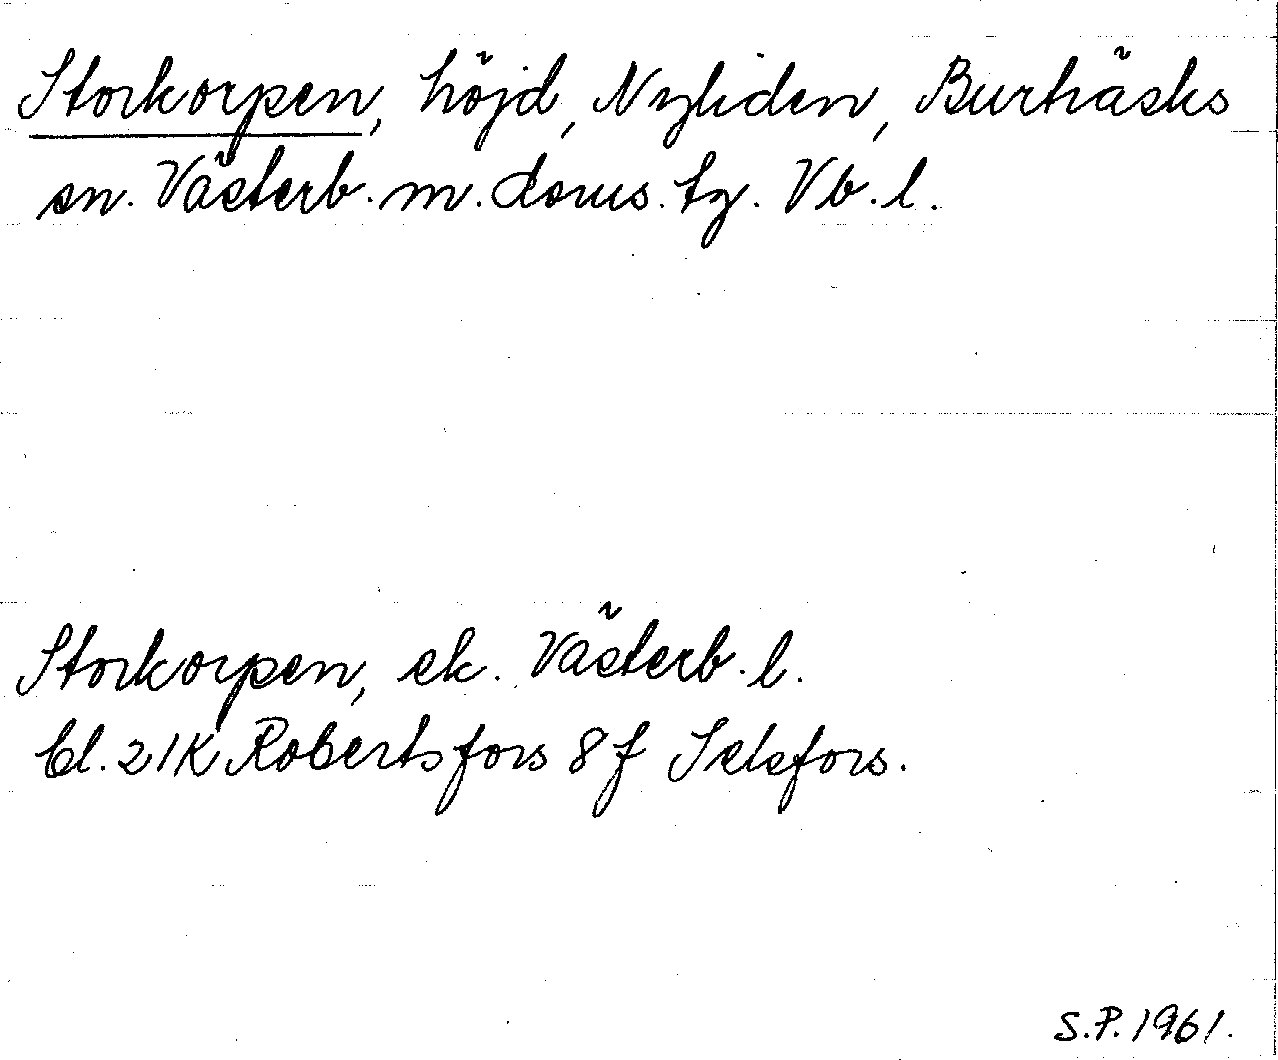 Storkorpen, höjd, Nyliden, Burträsks
sn. Västerb. m. doms. tg. Vb. l.
Storkorpen, ek. Västerb. l.
bl. 21K Robertsfors 8f Selsfors.
S.P. 1961.